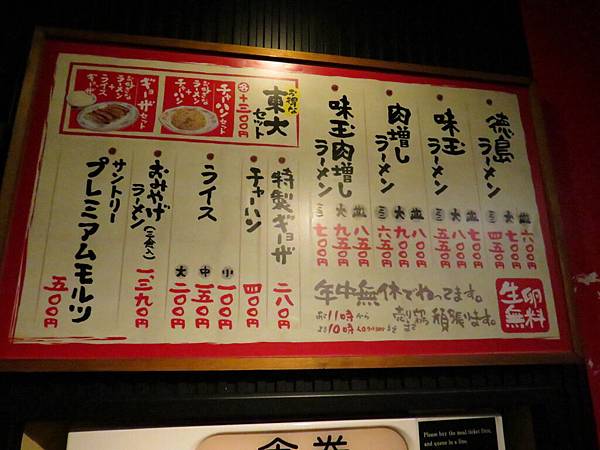 徳島
ラーメン
並 六〇〇円
大 七〇〇円
ミニ 四五〇円
味玉
ラーメン
並 七〇〇円
大 八〇〇円
ミニ 五五〇円
肉増し
ラーメン
並 八〇〇円
大 九〇〇円
ミニ 六五〇円
味玉肉増し
ラーメン
並 八五〇円
大 九五〇円
ミニ 七〇〇円
お得な
東大セット
各+三〇〇円
チャーハンセット
お好きな
ラーメン
+
チャーハン
ギョーザセット
お好きな
ラーメン
+
ライス
ギョーザ
特製ギョーザ 二六〇円
チャーハン 四〇〇円
ライス
小 一〇〇円
中 一五〇円
大 二〇〇円
おみやげ
ラーメン(三食入) 一,三九〇円
サントリー
プレミアムモルツ 五〇〇円
年中無休でねってます。
あさ11時から
よる10時
頑張ります。
生卵
無料
食券
Please buy the meal ticket first,
and queue in a line.